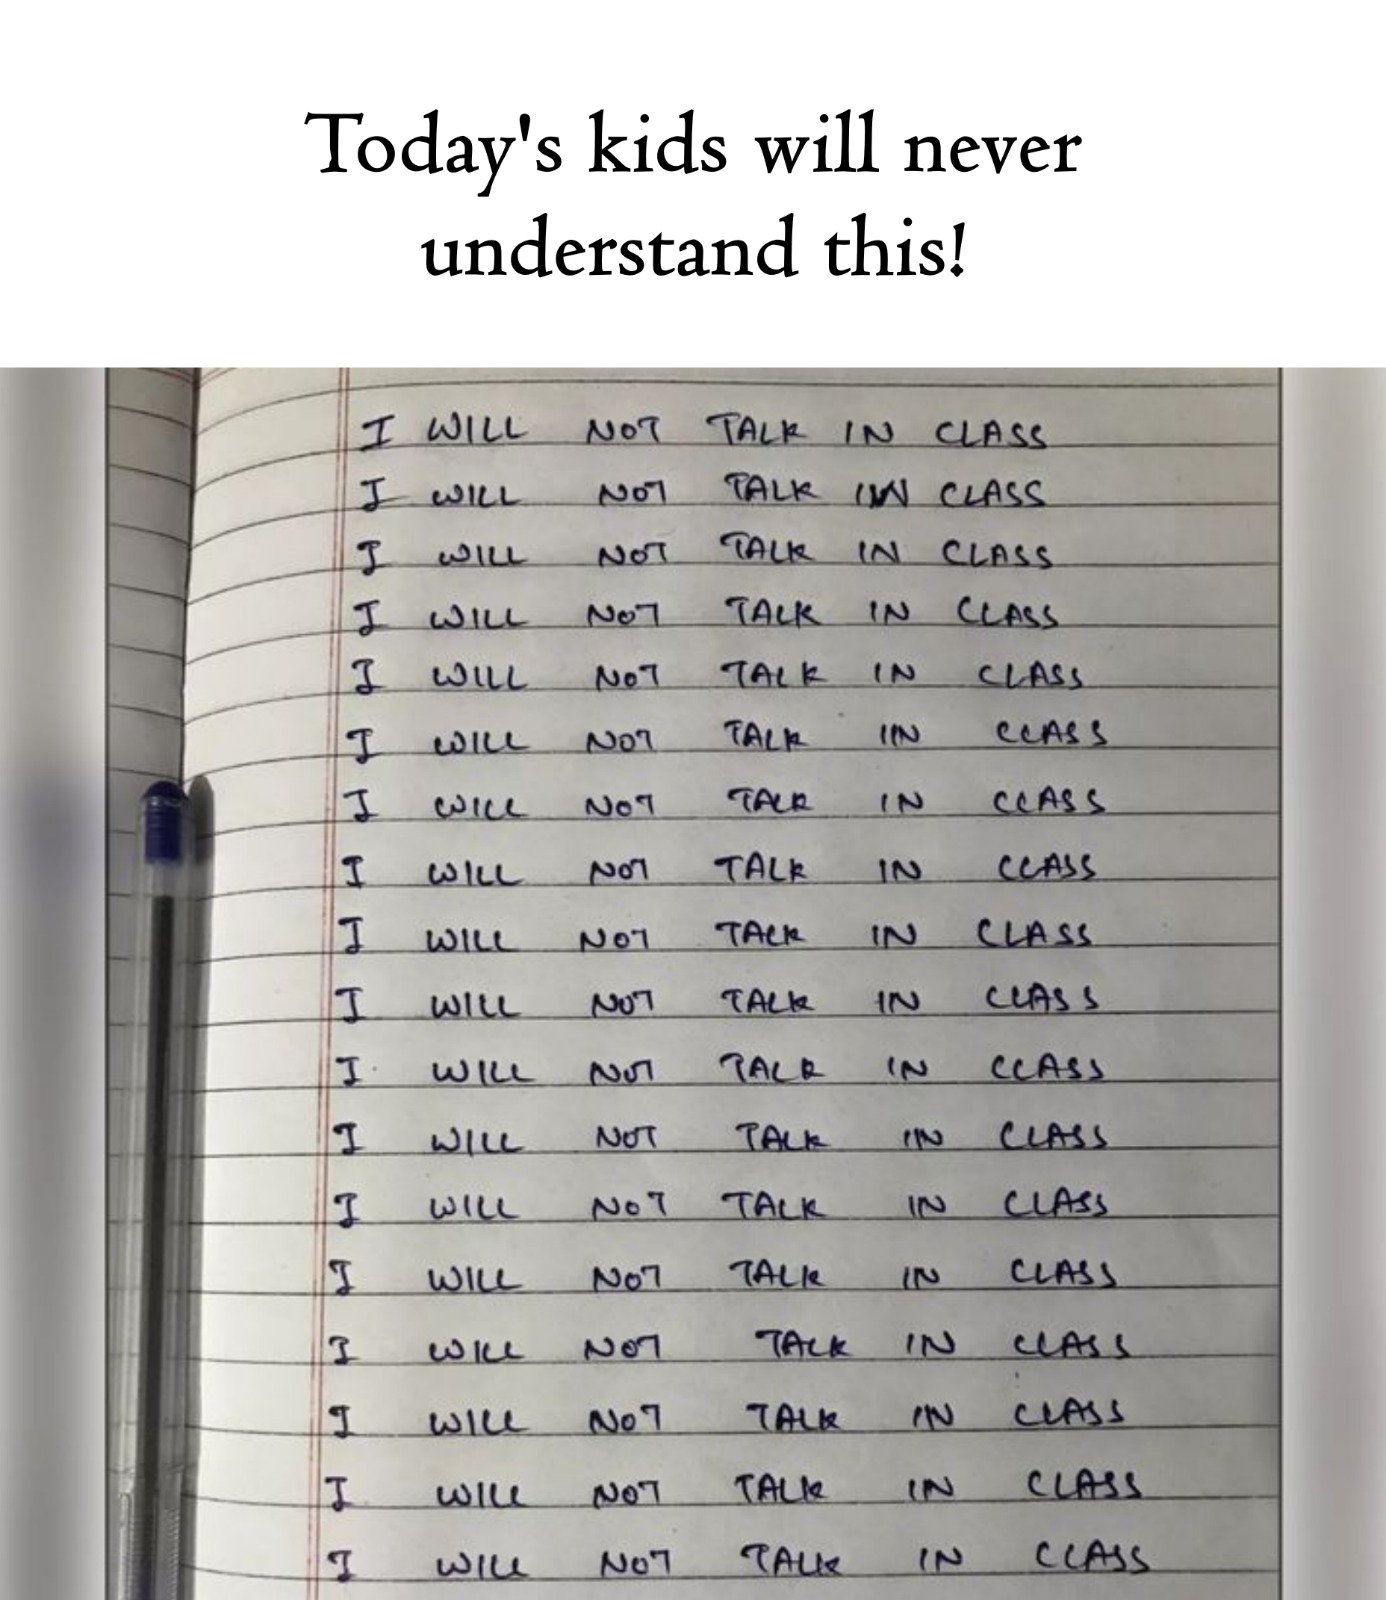 Today's kids will never
understand this!
I WILL NOT TALK IN CLASS
I WILL NOT TALK IN CLASS
I WILL NOT TALK IN CLASS
I WILL NOT TALK IN CLASS
I WILL NOT TALK IN CLASS
I WILL NOT TALK IN CLASS
I WILL NOT TALK IN CLASS
I WILL NOT TALK IN CLASS
I WILL NOT TALK IN CLASS
I WILL NOT TALK IN CLASS
I WILL NOT TALK IN CLASS
I WILL NOT TALK IN CLASS
I WILL NOT TALK IN CLASS
I WILL NOT TALK IN CLASS
I WILL NOT TALK IN CLASS
I WILL NOT TALK IN CLASS
I WILL NOT TALK IN CLASS
I WILL NOT TALK IN CLASS